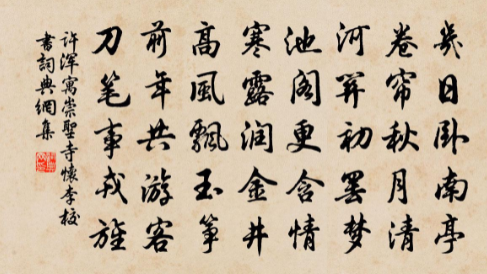 幾日卧南亭
卷帘秋月清
河關初罢梦
池阁更含情
寒露润金井
高風飄玉筝
前年共游客
刀笔事戎旌
许浑寓崇聖寺懷李校
書詞典網集